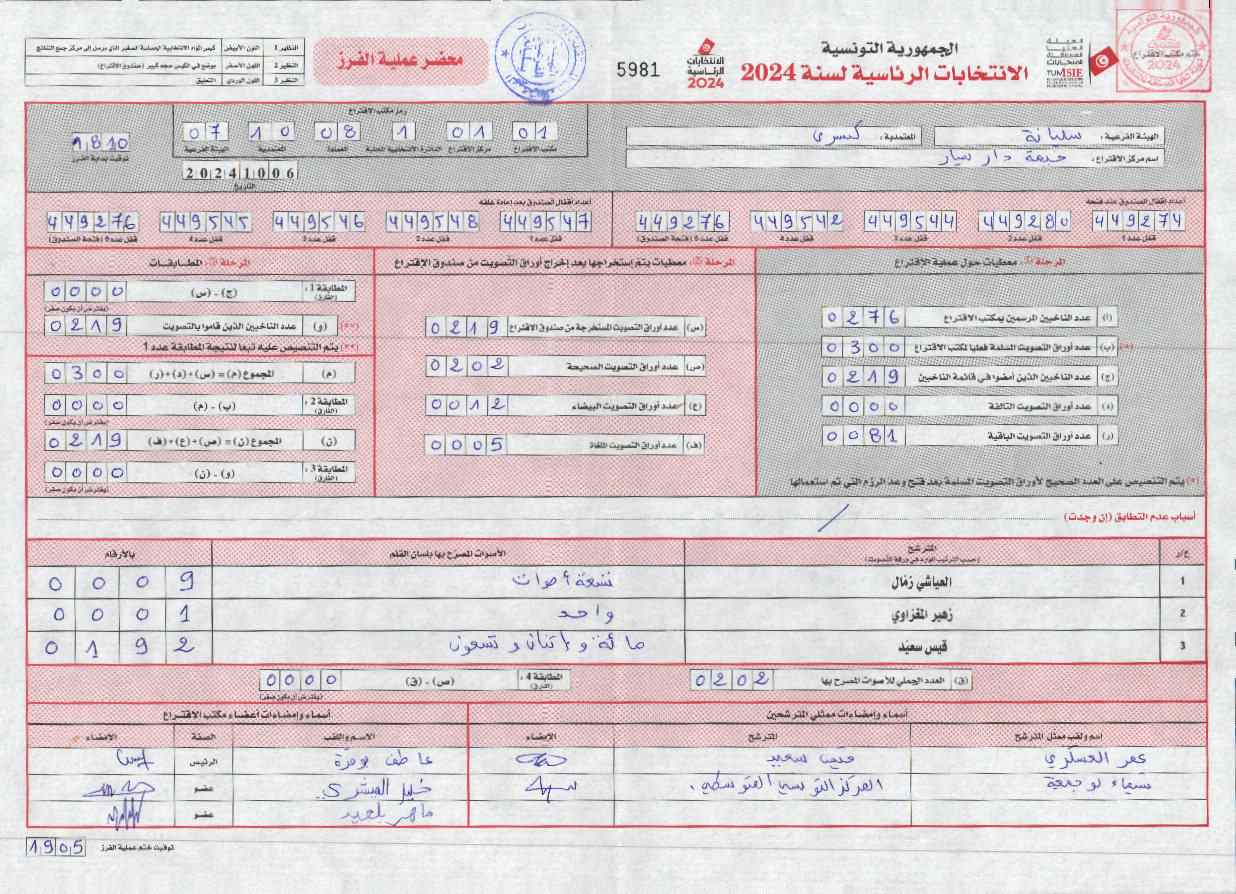 الجمهورية التونسية
الانتخابات الرئاسية لسنة 2024
الهيئة العليا المستقلة للانتخابات
TUNISIE
الانتخابات الرئاسية 2024
5981
محضر عملية الفرز
النظير 1 اللون الأبيض
النظير 2 اللون الأصفر يوضع في الكيس حجم كبير (صندوق الاقتراع)
النظير 3 اللون الوردي التعليق
الجمهورية التونسية
ختم مكتب الاقتراع
2024
الهيئة الفرعية : سليانة المعتمدية : كسرى
اسم مركز الاقتراع : دار سيار
رمز مكتب الاقتراع
01 01 1 08 10 07
مكتب الاقتراع مركز الاقتراع الدائرة الانتخابية المحلية العمادة المعتمدية الهيئة الفرعية
1810
توقيت بداية الفرز
20241006
التاريخ
أعداد أقفال الصندوق عند فتحه
449274 449280 449544 449542 449276
قفل عدد 1 قفل عدد 2 قفل عدد 3 قفل عدد 4 قفل عدد 5 (فتحة الصندوق)
أعداد أقفال الصندوق بعد إعادة غلقه
449547 449548 449546 449545 449276
قفل عدد 1 قفل عدد 2 قفل عدد 3 قفل عدد 4 قفل عدد 5 (فتحة الصندوق)
المرحلة 1: معطيات حول عملية الاقتراع
(أ) عدد الناخبين المرسمين بمكتب الاقتراع 0276
(*) (ب) عدد أوراق التصويت المسلمة فعليا لمكتب الاقتراع 0300
(ج) عدد الناخبين الذين أمضوا في قائمة الناخبين 0219
(د) عدد أوراق التصويت التالفة 0000
(ر) عدد أوراق التصويت الباقية 0081
(*) يتم التنصيص على العدد الصحيح لأوراق التصويت المسلمة بعد فتح وعد الرزم التي تم استعمالها
المرحلة 2: معطيات يتم إستخراجها بعد إخراج أوراق التصويت من صندوق الإقتراع
(س) عدد أوراق التصويت المستخرجة من صندوق الاقتراع 0219
(ص) عدد أوراق التصويت الصحيحة 0202
(ع) عدد أوراق التصويت البيضاء 0012
(ف) عدد أوراق التصويت الملغاة 0005
المرحلة 3: المطابقات
المطابقة 1 : (الفارق) (ج) - (س) 0000
(يفترض أن يكون صفر)
(**) (و) عدد الناخبين الذين قاموا بالتصويت 0219
(**) يتم التنصيص عليه تبعا لنتيجة المطابقة عدد 1
(م) المجموع (م) = (س)+(د)+(ر) 0300
المطابقة 2 : (الفارق) (ب) - (م) 0000
(يفترض أن يكون صفر)
(ن) المجموع (ن) = (ص)+(ع)+(ف) 0219
المطابقة 3 : (الفارق) (و) - (ن) 0000
(يفترض أن يكون صفر)
أسباب عدم التطابق (إن وجدت) /
ع/ر المترشح الأصوات المصرح بها بلسان القلم بالأرقام
(حسب الترتيب الوارد في ورقة التصويت)
1 العياشي زمّال تسعة أصوات 0009
2 زهير المغزاوي واحد 0001
3 قيس سعيّد مائة و إثنان و تسعون 0192
(ق) العدد الجملي للأصوات المصرح بها 0202
المطابقة 4 : (الفارق) (ص) - (ق) 0000
(يفترض أن يكون صفر)
أسماء وإمضاءات ممثلي المترشحين
أسماء وإمضاءات أعضاء مكتب الاقتراع
اسم ولقب ممثل المترشح المترشح الامضاء الاسم واللقب الصفة الامضاء
عمر العسكري قيس سعيد عاطف بوقرة الرئيس
شيماء بوجمعة المركز التونسي المتوسطي خليل عضو
ماهر بلعيد عضو
توقيت ختم عملية الفرز 1905